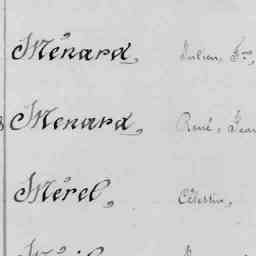 Ménard, Julien, Fçois,
Menard, René, Jean
Mérel, Célestin,